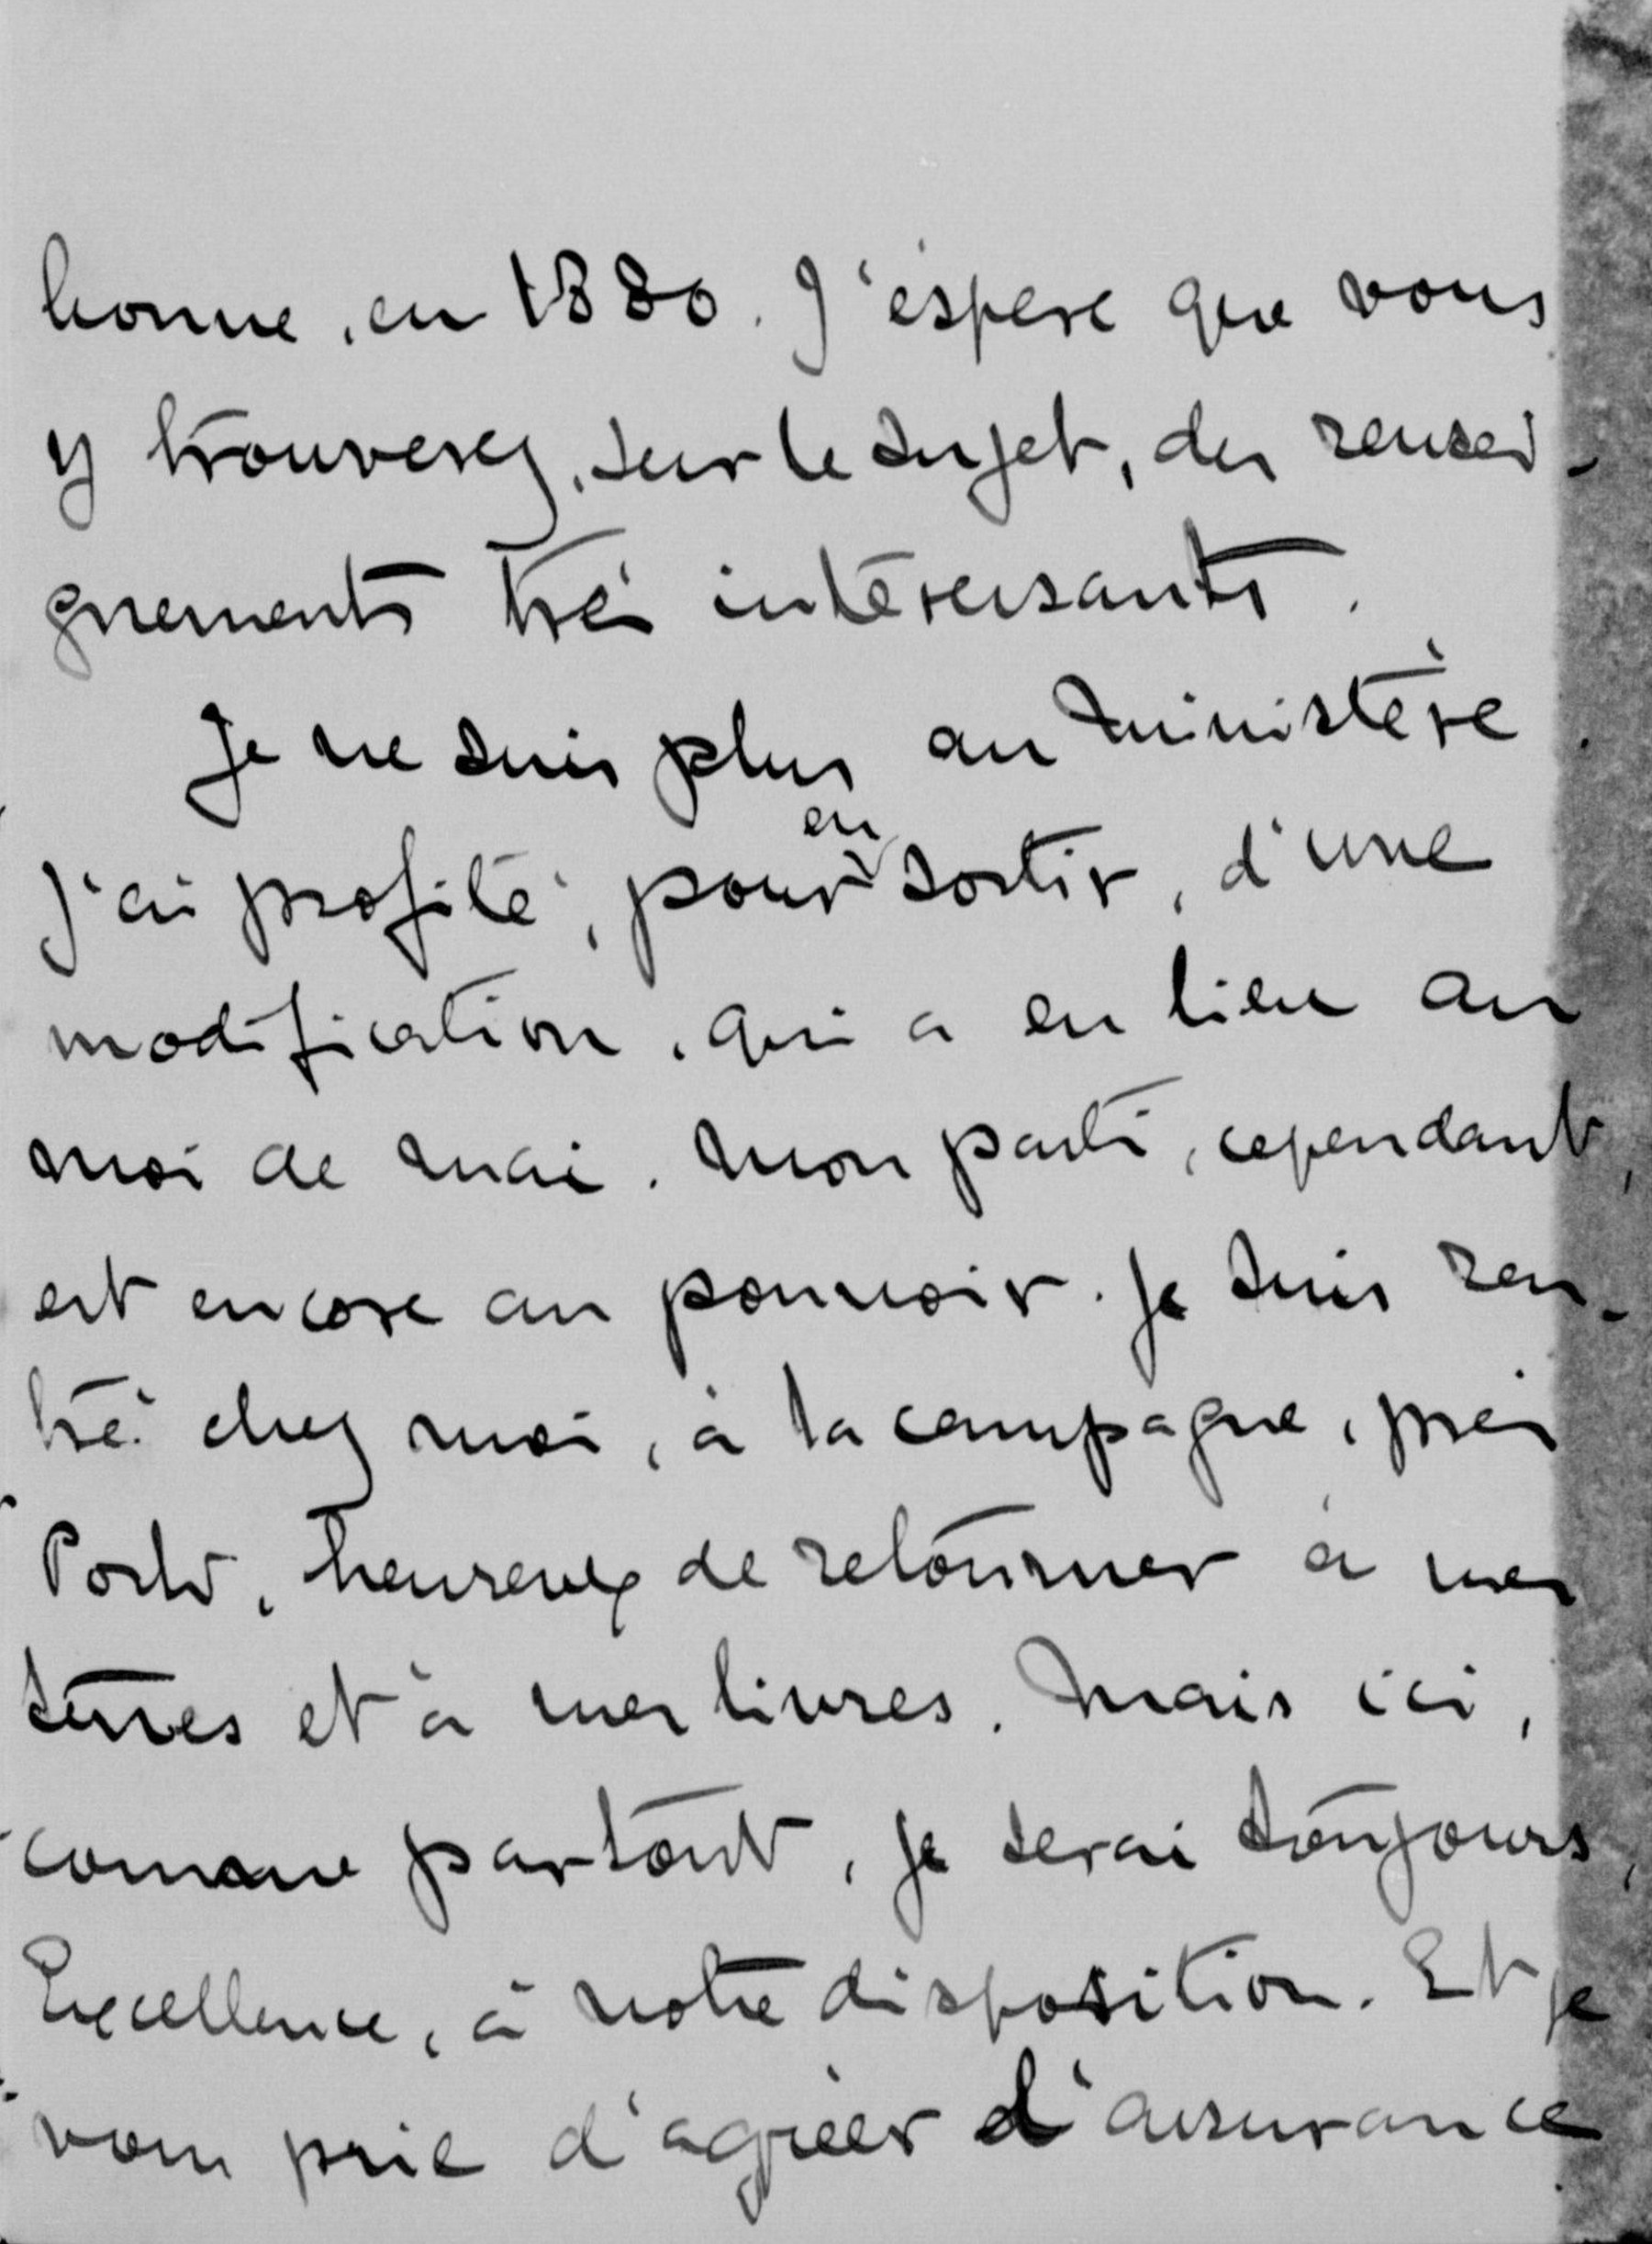 bonne, en 1880. J'éspere que vous
y trouverez, sur le sujet, des rensei-
gnements trés intéressants.
Je ne suis plus au Ministère.
J'ai profité, pour en sortir, d'une
modification, qui a eu lieu au
moi de mai. Mon parti, cependant,
est encore au pouvoir. Je suis ren-
tré chez moi, à la campagne, prés
Porto, heureux de retourner à mes
terres et à mes livres. Mais ici,
comme partout, je serai toujours,
Excellence, à votre disposition. Et je
vous prie d'agréer d'assurance